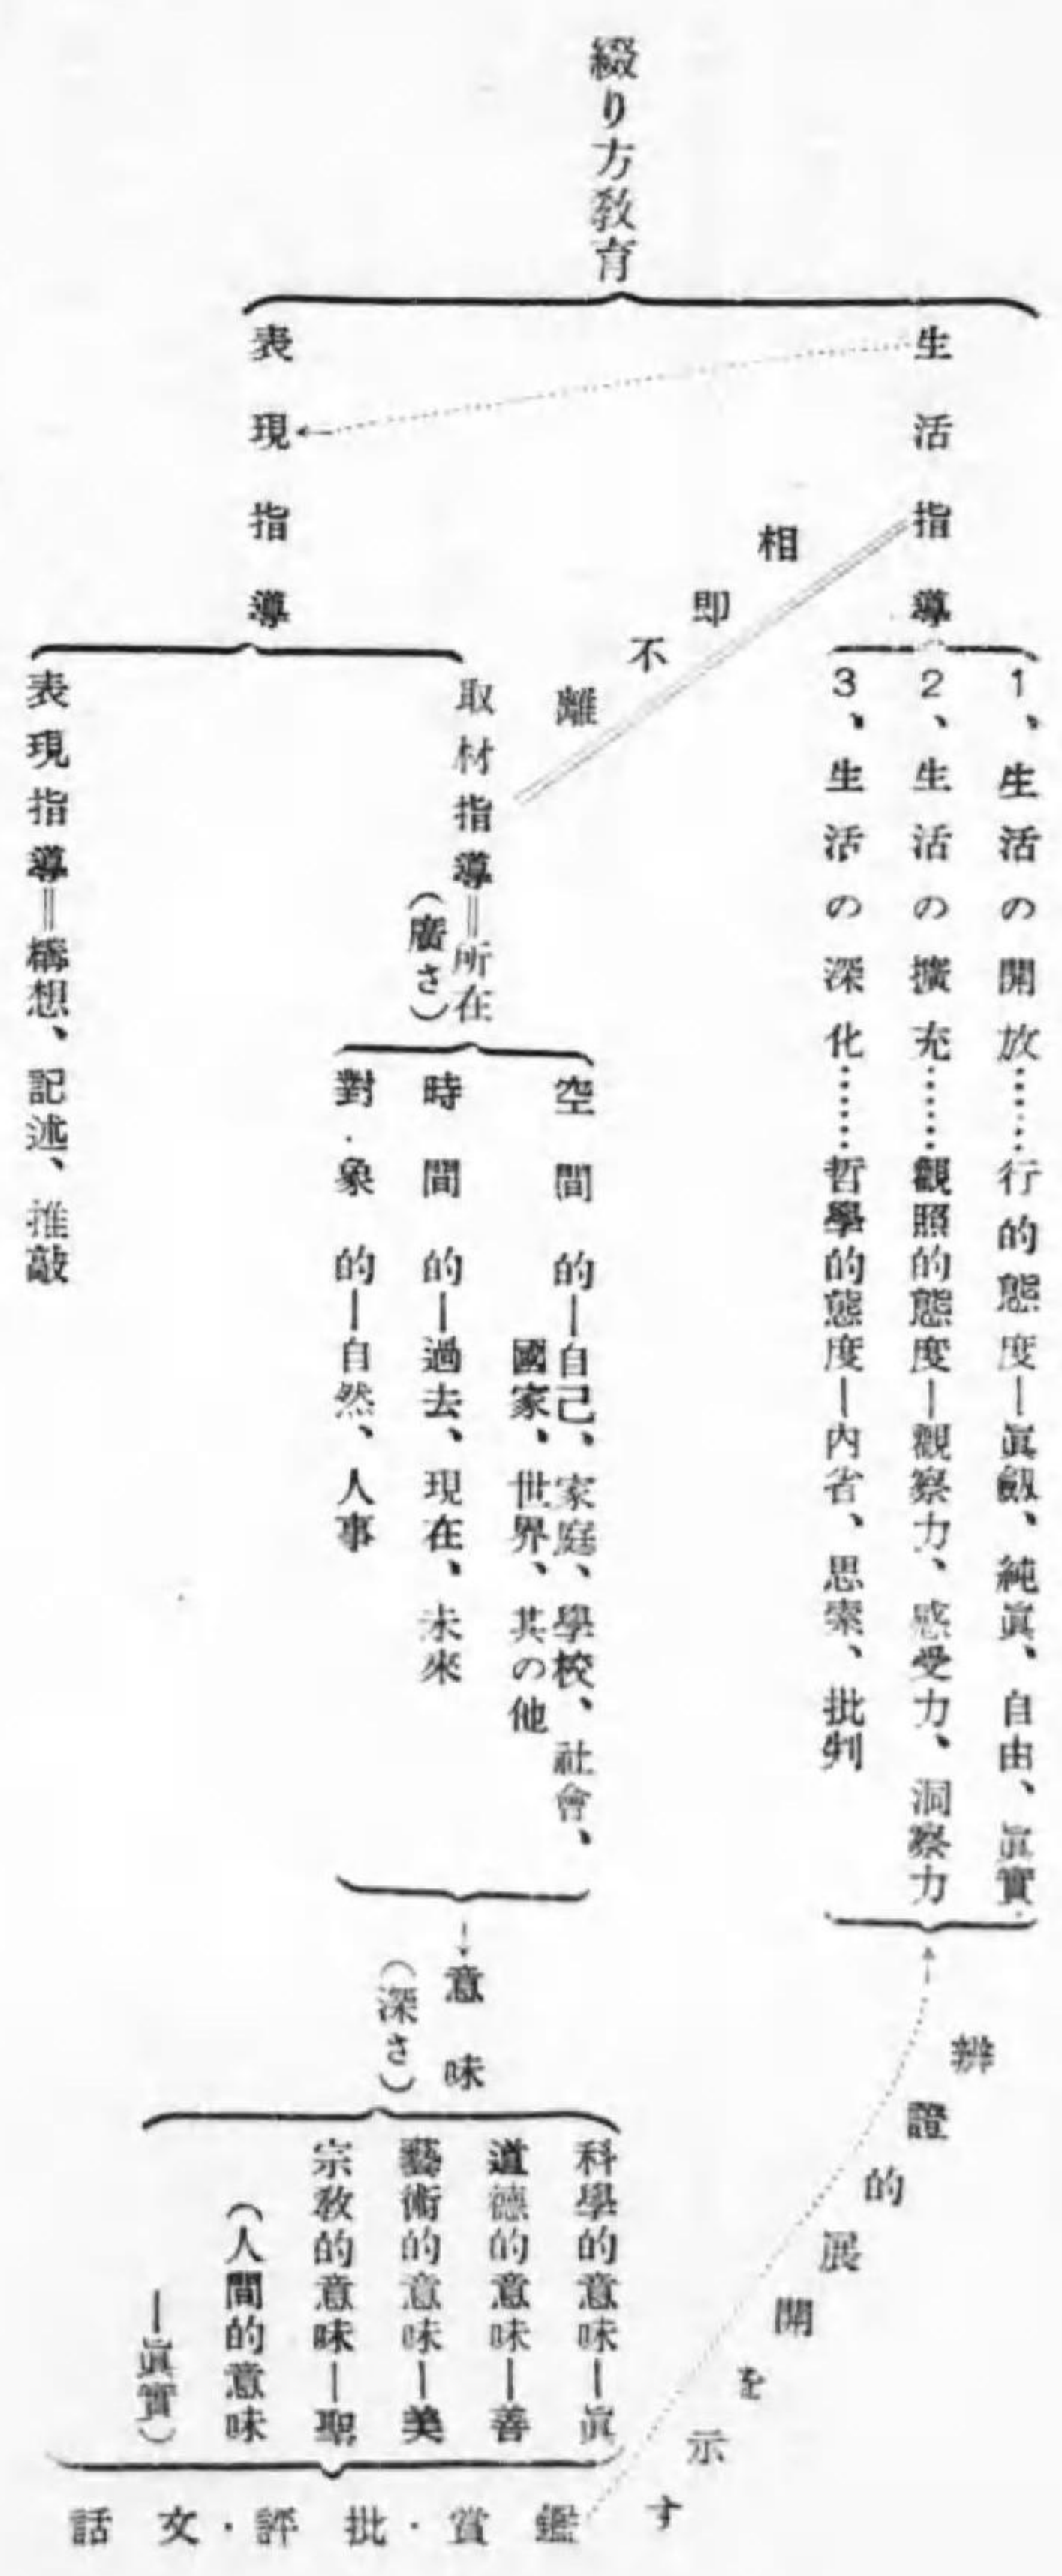 綴り方敎育
生活指導
1、生活の開放……行的態度—眞劔、純眞、自由、眞實
2、生活の擴充……觀照的態度—觀察力、感受力、洞察力
3、生活の深化……哲學的態度—內省、思索、批判
相即不離
表現指導
取材指導＝所在
（廣さ）
空間的—自己、家庭、學校、社會、
國家、世界、其の他
時間的—過去、現在、未來
對象的—自然、人事
意味
（深さ）
科學的意味—眞
道德的意味—善
藝術的意味—美
宗敎的意味—聖
（人間的意味
—眞實）
表現指導＝構想、記述、推敲
鑑賞・批評・文話
辨證的展開を示す